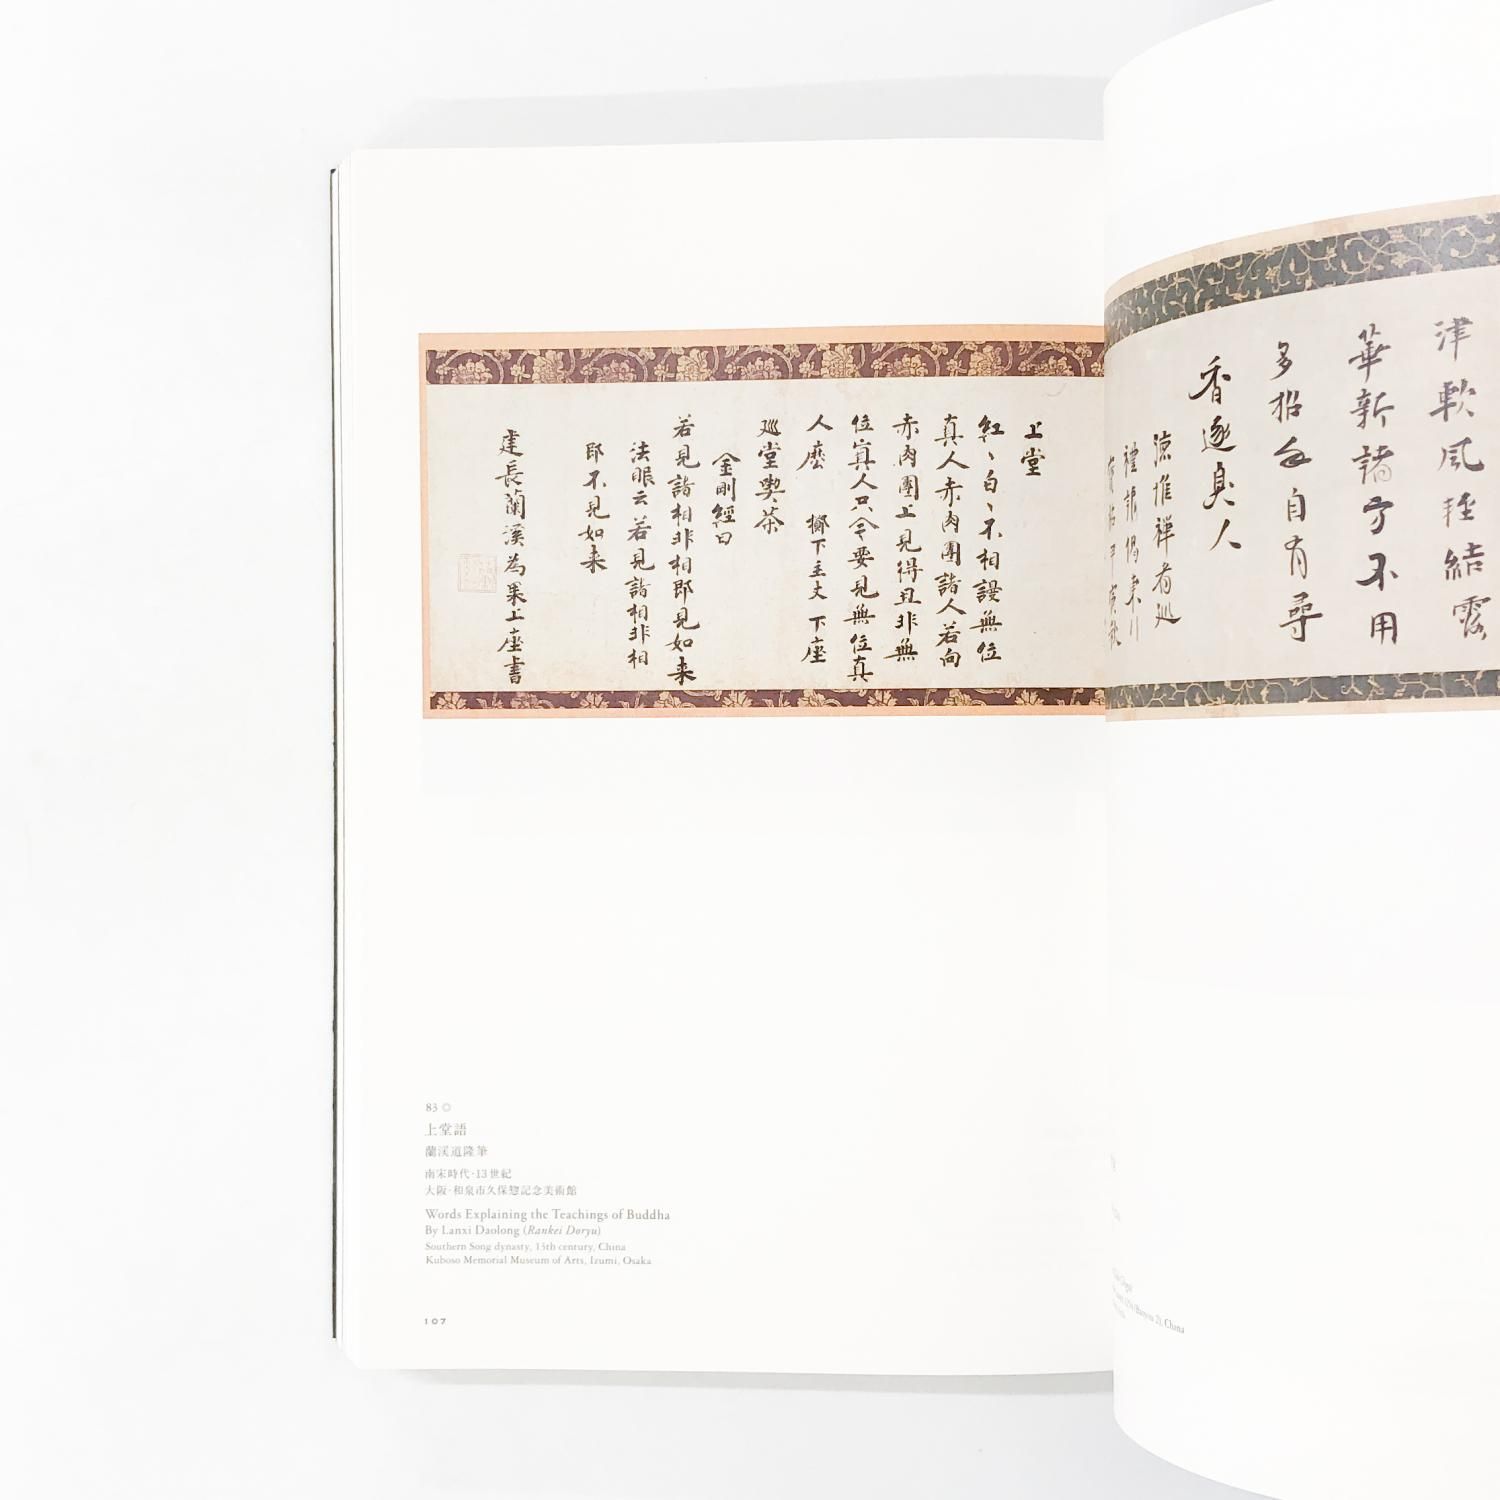 上堂
紅〻白〻不相謾無位
真人赤肉團諸人若向
赤肉團上見得且非無
位真人只今要見無位真
人麼 擲下主丈 下座
巡堂喫茶
金剛經曰
若見諸相非相即見如来
法眼云若見諸相非相
即不見如来
建長蘭溪為杲上座書
83 ◎
上堂語
蘭渓道隆筆
南宋時代・13世紀
大阪・和泉市久保惣記念美術館
Words Explaining the Teachings of Buddha
By Lanxi Daolong (Rankei Doryu)
Southern Song dynasty, 13th century, China
Kuboso Memorial Museum of Arts, Izumi, Osaka
107
津軟風軽結露
華新諸方不用
多招手自有尋
香逐臭人
禅者巡
禮
China